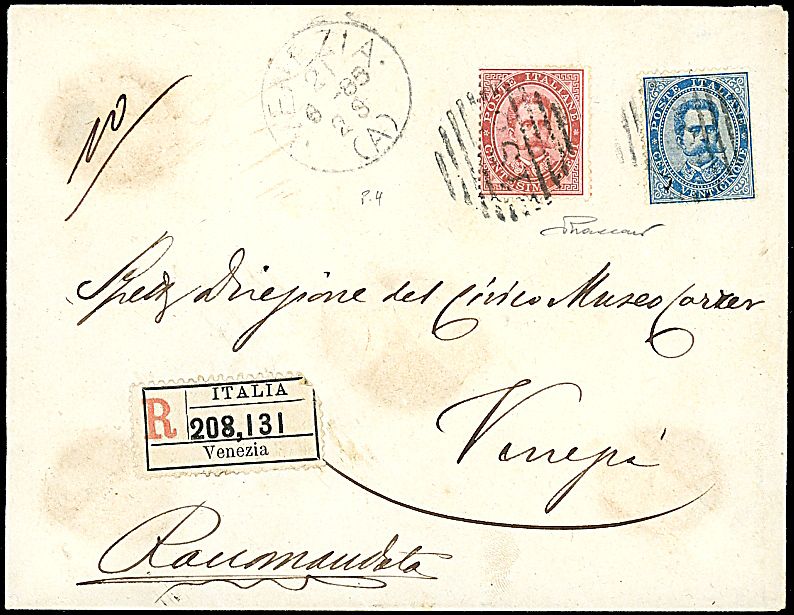 VENEZIA.
21
9 85
2 S
(A)
10
POSTE ITALIANE
CENTESIMI
POSTE ITALIANE
CENT. VENTICINQUE
P. 4
Spett Direzione del Civico Museo Correr
Venezia
R
ITALIA
208,131
Venezia
Raccomandata